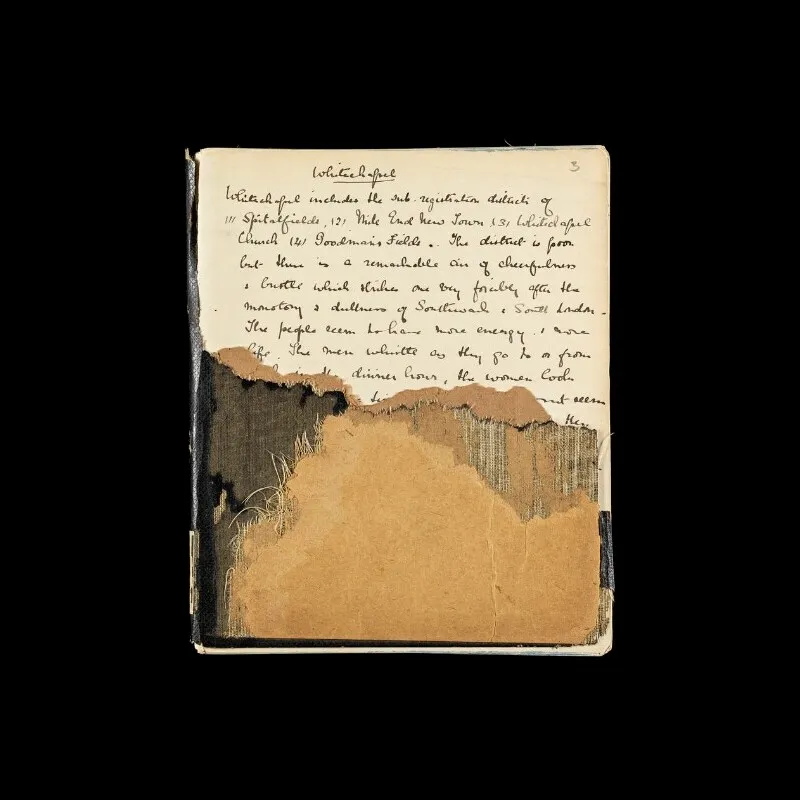 3
Whitechapel
Whitechapel includes the sub-registration districts of
(1) Spitalfields, (2) Mile End New Town (3) Whitechapel
Church (4) Goodman's Fields. The district is poor
but there is a remarkable air of cheerfulness
& bustle which strikes one very forcibly after the
monotony & dullness of Southwark & South London.
The people seem to have more energy & more
life. The men whistle as they go to or from
the dinner hour, the women look
not seem